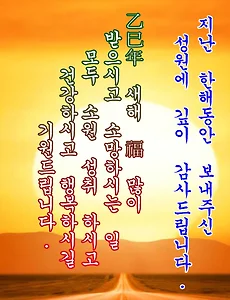 지난 한해동안 보내주신
성원에 깊이 감사드립니다.
乙巳年 새해 福 많이
받으시고 소망하시는 일
모두 소원 성취 하시고
건강하시고 행복하시길
기원드립니다.